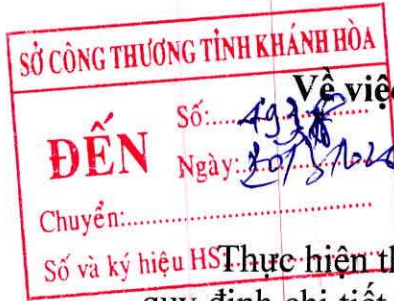 SỞ CÔNG THƯƠNG TỈNH KHÁNH HÒA
Về việc
ĐẾN
Số:
Ngày:
Chuyển:
Số và ký hiệu HS
Thực hiện th
quy định chi tiết